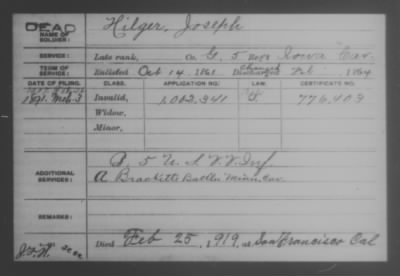 DEAD
NAME OF SOLDIER: Hilger, Joseph
SERVICE: Late rank, Co. G, 5 Reg't Iowa Cav.
TERM OF SERVICE: Enlisted Oct 14, 1861 Discharged Feb 1, 1864
DATE OF FILING. CLASS. APPLICATION NO. LAW. CERTIFICATE NO.
1891. Mch. 3 Invalid, 1,002.341 776.403
Widow,
Minor,
B. 5 U. S. V. V. Inf.
ADDITIONAL SERVICES: A Bracketts Battln Minn. Cav.
REMARKS:
Died Feb 25, 1919, at San Francisco Cal